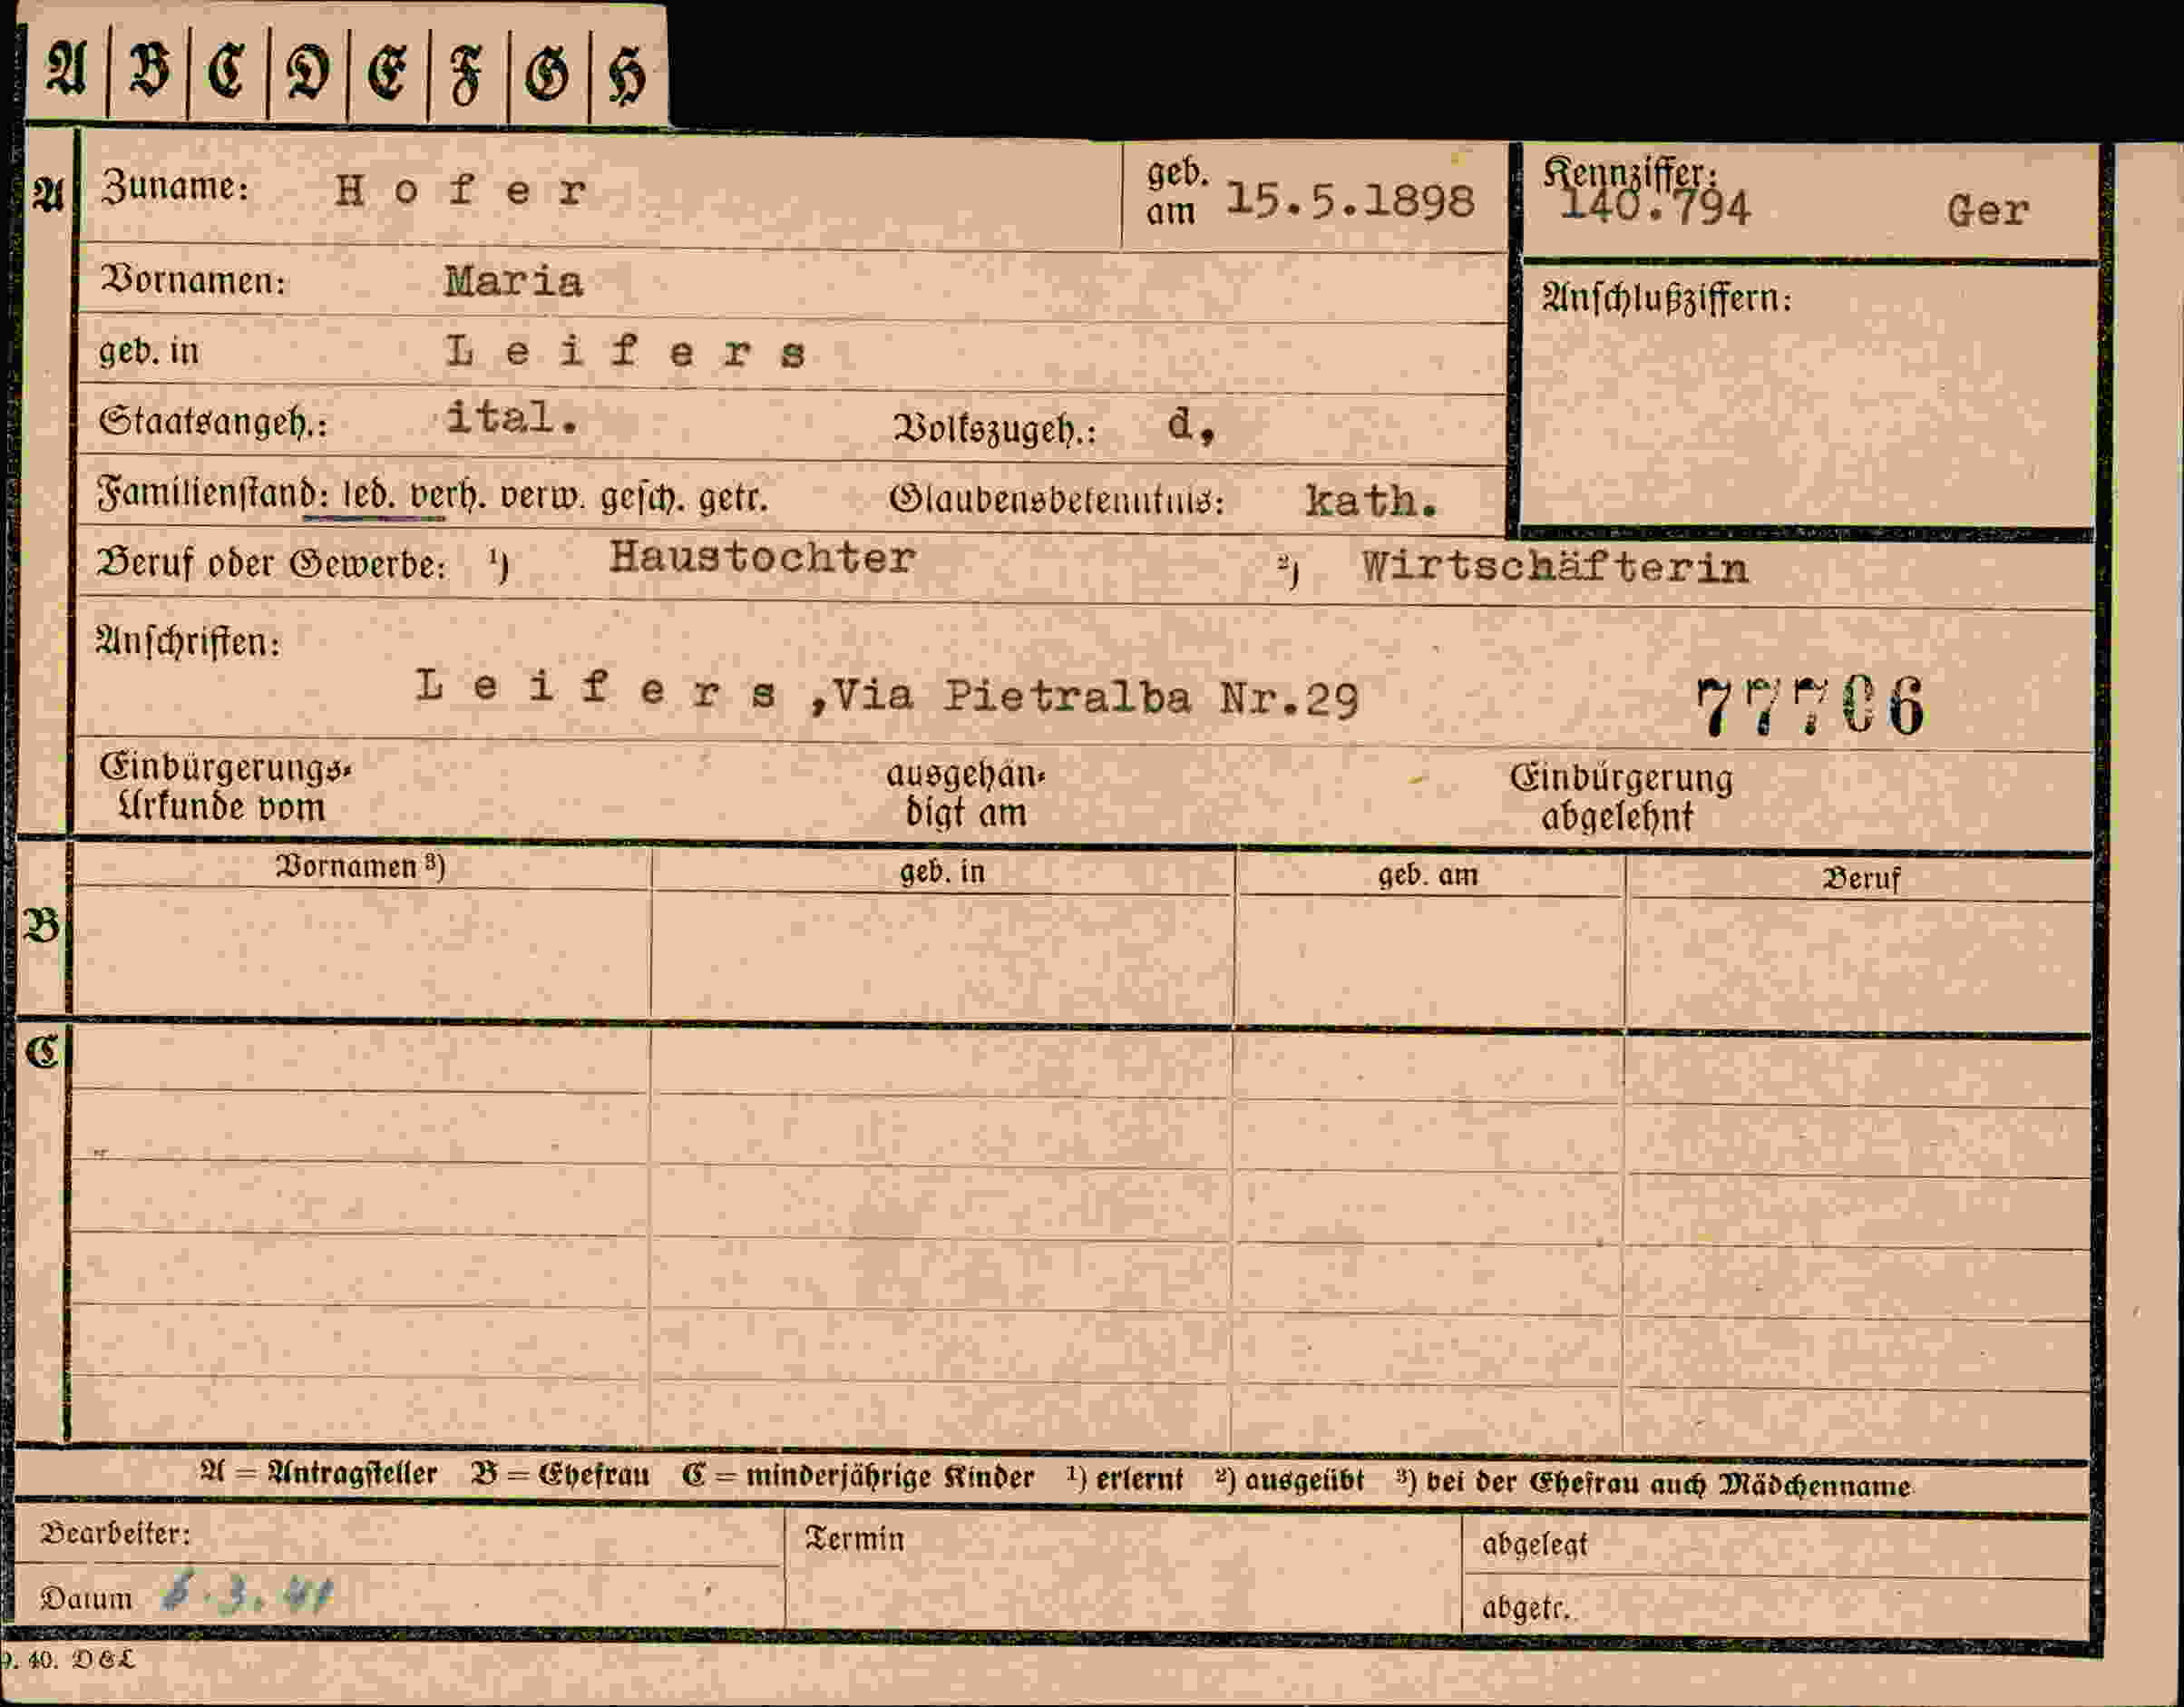 A B C D E F G H
A Zuname: Hofer geb. am 15.5.1898 Kennziffer: 140.794 Ger
Vornamen: Maria Anschlußziffern:
geb. in Leifers
Staatsangeh.: ital. Volkszugeh.: d,
Familienstand: led. verh. verw. gesch. getr. Glaubensbekenntnis: kath.
Beruf oder Gewerbe: ¹) Haustochter ²) Wirtschäfterin
Anschriften:
Leifers, Via Pietralba Nr.29 77706
Einbürgerungs- ausgehän- Einbürgerung
Urkunde vom digt am abgelehnt
Vornamen ³) geb. in geb. am Beruf
B
C
A = Antragsteller B = Ehefrau C = minderjährige Kinder ¹) erlernt ²) ausgeübt ³) bei der Ehefrau auch Mädchenname
Bearbeiter: Termin abgelegt
Datum .3.41 abgetr.
9. 40. DGL